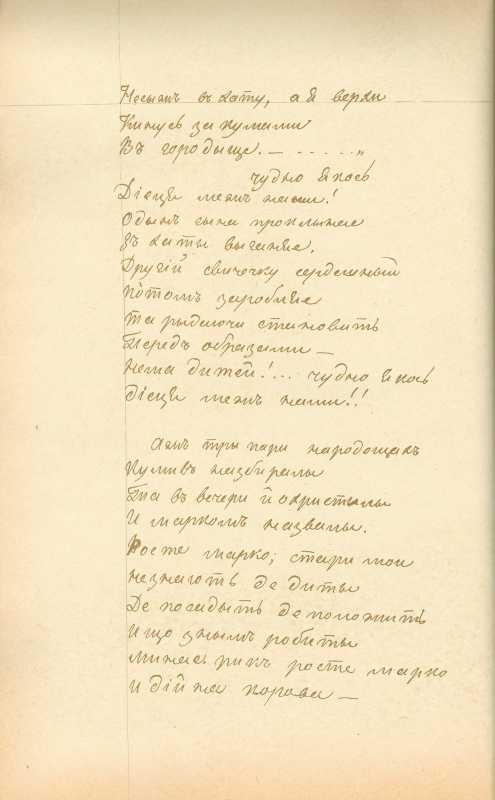 Несыжъ въ хату, а я верхы
Кинусь за кумами
Въ городыще. — - - - - - „
чудно якось
Діеця межъ нами!
Одынъ сына проклынае
Зъ хаты выганяе.
Другій свичечку сердешный
Потомъ заробляе
Та рыдаючи становить
Передъ образами —
Нема дитей!... чудно якось
Діеця межъ нами!!
Ажъ тры пари на родощахъ
Кумивъ назбиралы
Та въ вечери й охристылы
И маркомъ назвалы.
Росте марко; стари мои
Незнають де диты
Де посадыть де положить
И що знымъ робиты
Минае рикъ росте марко
И дійна корова —